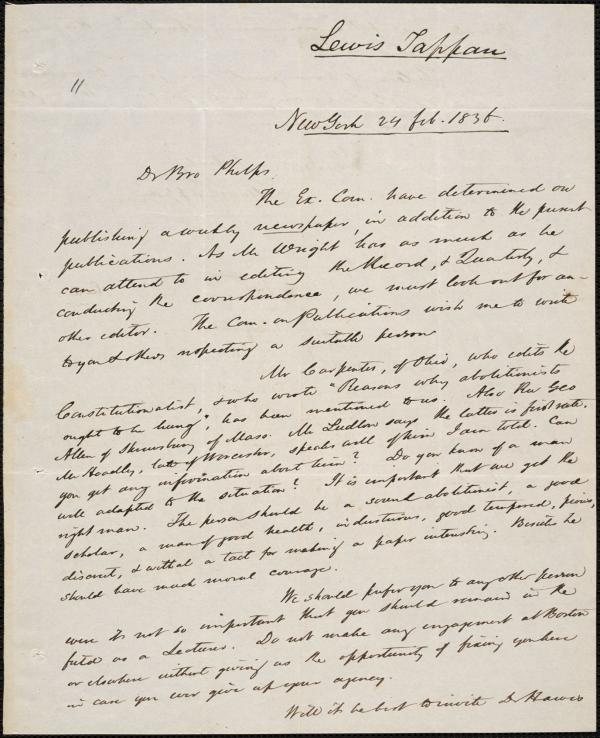 Lewis Tappan
11
New York 24 feb. 1836.
Dr Bro Phelps.
The Ex. Com. have determined on
publishing a weekly newspaper, in addition to the present
publications. As Mr Wright has as much as he
can attend to in editing the Record, & Quarterly, &
conducting the correspondence, we must look out for an-
other editor. The Com. on Publications wish me to write
to you & others respecting a suitable person.
Mr Carpenter, of Ohio, who edits the
Constitutionalist, & who wrote "Reasons why abolitionists
ought to be hung", has been mentioned to us. Also Rev Geo
Allen of Shrewsbury of Mass. Mr Ludlow says the latter is first rate.
Mr Hoadley, late of Worcester, speaks well of him I am told. Can
you get any information about him? Do you know of a man
well adapted to the situation? It is important that we get the
right man. The person should be a sound abolitionist, a good
scholar, a man of good health, industrious, good tempered, pious,
discreet, & withal a tact for making a paper interesting. Besides he
should have much moral courage.
We should prefer you to any other person
were it not so important that you should remain in the
field as a Lecturer. Do not make any engagement at Boston
or elsewhere without giving us the opportunity of fixing you here
in case you ever give up your agency.
Will it be best to invite Dr Hawes